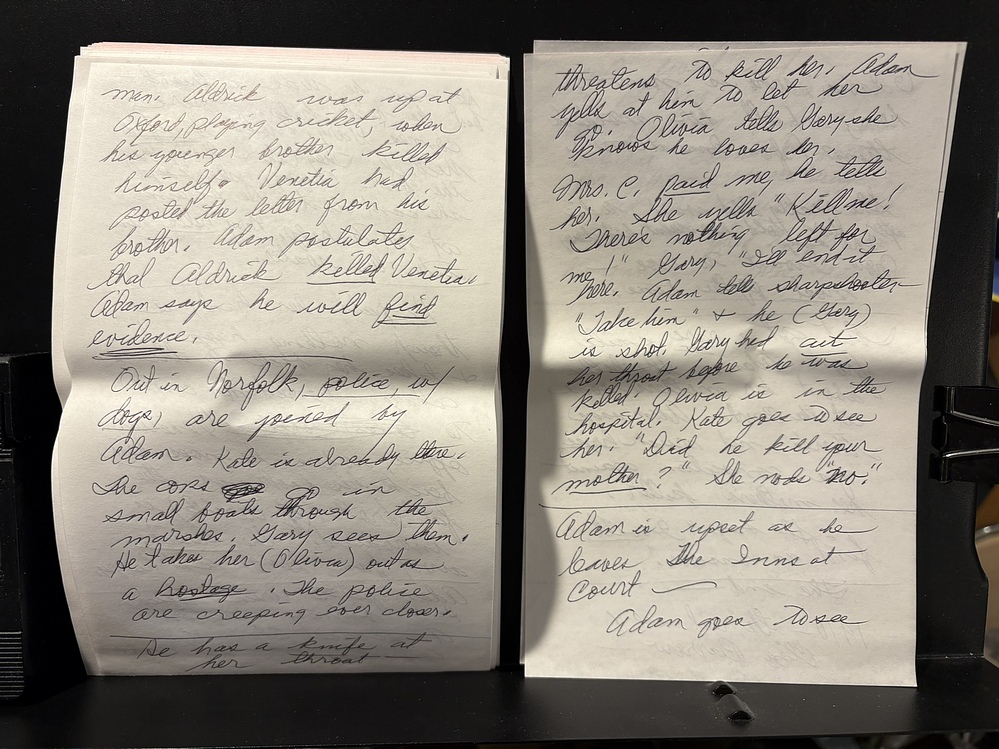 man. Aldrick was up at
Oxford, playing cricket, when
his younger brother killed
himself. Venetia had
posted the letter from his
brother. Adam postulates
that Aldrick killed Venetia.
Adam says he will find
evidence.
Out in Norfolk, police, w/
dogs, are joined by
Adam. Kate is already there.
The cops go in
small boats through the
marshes. Gary sees them.
He takes her (Olivia) out as
a hostage. The police
are creeping ever closer.
He has a knife at
her throat
threatens to kill her. Adam
yells at him to let her
go. Olivia tells Gary she
knows he loves her.
Mrs. C. paid me, he tells
her. She yells "Kill me!
There's nothing left for
me!" Gary, "I'll end it
here. Adam tells sharpshooter
"Take him" + he (Gary)
is shot. Gary had cut
her throat before he was
killed. Olivia is in the
hospital. Kate goes to see
her. "Did he kill your
mother?" She nods "no."
Adam is upset as he
leaves The Inns at
Court
Adam goes to see